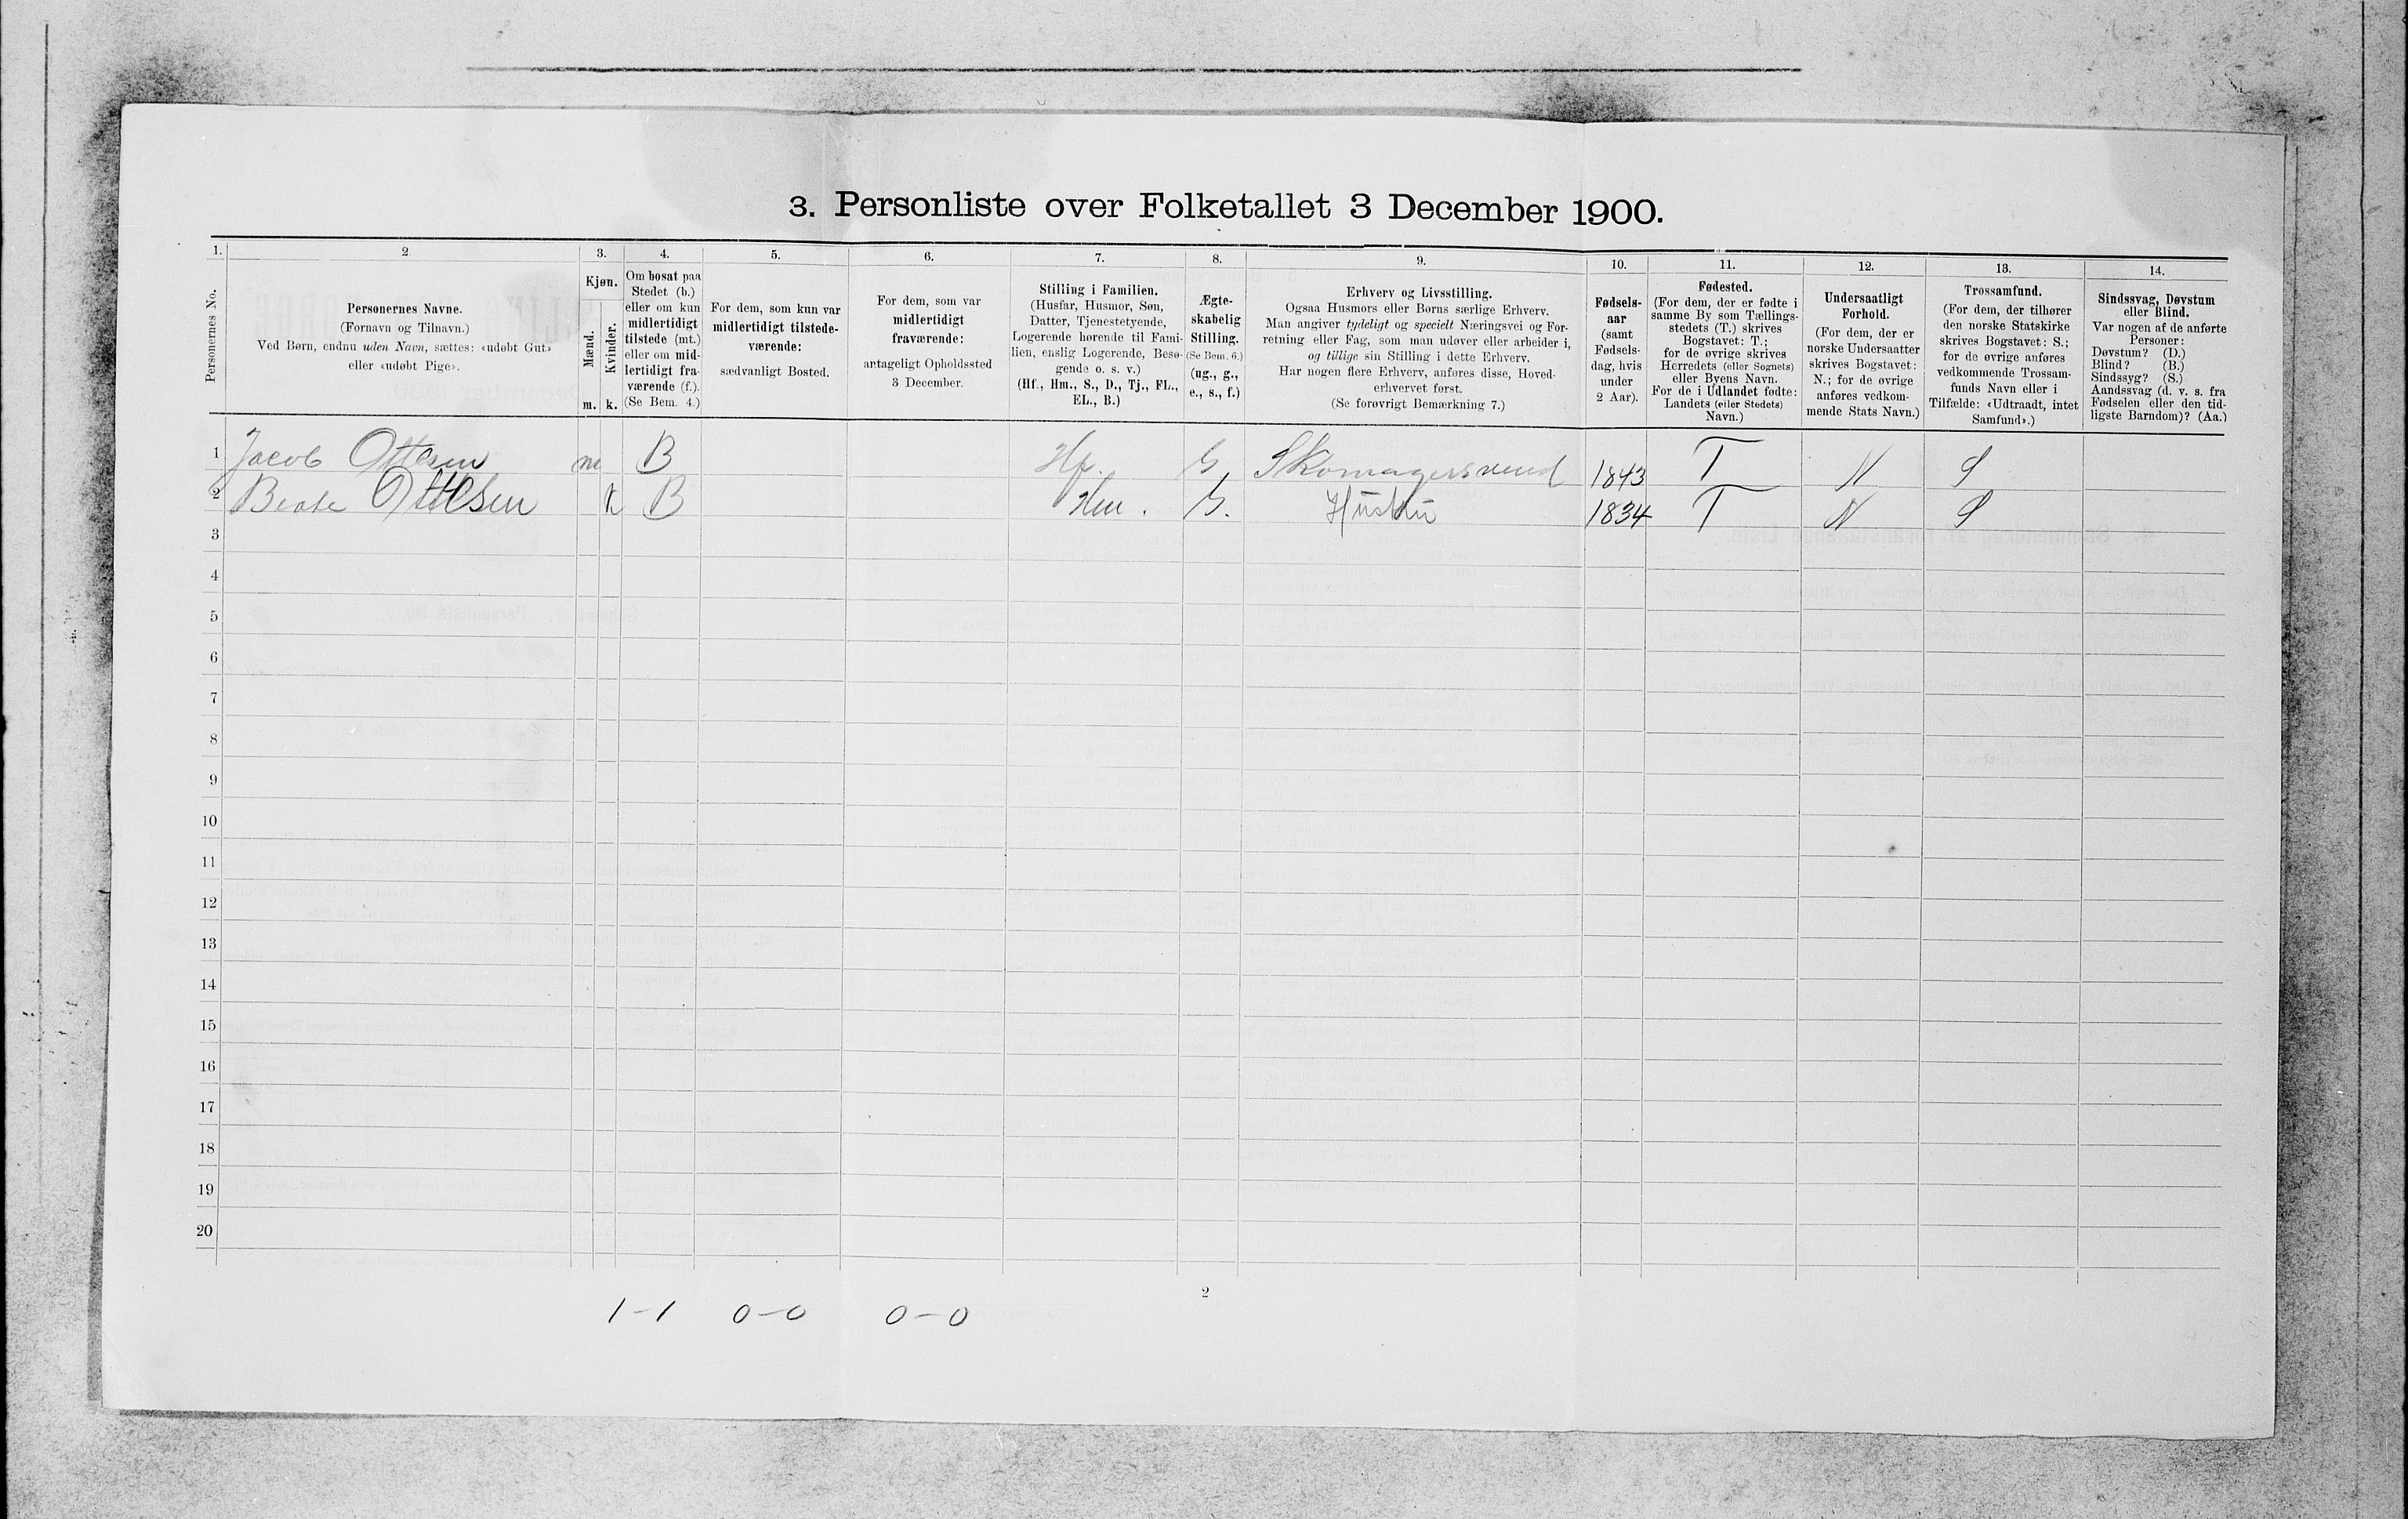 3. Personliste over Folketallet 3 December 1900.
1. 2 3. 4. 5. 6. 7. 8. 9. 10. 11. 12. 13. 14.
Personernes No.
Personernes Navne.
(Fornavn og Tilnavn.)
Ved Børn, endnu uden Navn, sættes: «udøbt Gut»
eller «udøbt Pige».
Kjøn.
Mænd.
m.
Kvinder.
k.
Om bosat paa
Stedet (b.)
eller om kun
midlertidigt
tilstede (mt.)
eller om mid-
lertidigt fra-
værende (f.).
(Se Bem. 4.)
For dem, som kun var
midlertidigt tilstede-
værende:
sædvanligt Bosted.
For dem, som var
midlertidigt
fraværende:
antageligt Opholdssted
3 December.
Stilling i Familien.
(Husfar, Husmor, Søn,
Datter, Tjenestetyende,
Logerende hørende til Fami-
lien, enslig Logerende, Besø-
gende o. s. v.)
(Hf., Hm., S., D., Tj., FL.,
EL., B.)
Ægte-
skabelig
Stilling.
(Se Bem. 6.)
(ug., g.,
e., s., f.)
Erhverv og Livsstilling.
Ogsaa Husmors eller Børns særlige Erhverv.
Man angiver tydeligt og specielt Næringsvei og For-
retning eller Fag, som man udøver eller arbeider i,
og tillige sin Stilling i dette Erhverv.
Har nogen flere Erhverv, anføres disse, Hoved-
erhvervet først.
(Se forøvrigt Bemærkning 7.)
Fødsels-
aar
(samt
Fødsels-
dag, hvis
under
2 Aar).
Fødested.
(For dem, der er fødte i
samme By som Tællings-
stedets (T.) skrives
Bogstavet: T.;
for de øvrige skrives
Herredets (eller Sognets)
eller Byens Navn.
For de i Udlandet fødte:
Landets (eller Stedets)
Navn.)
Undersaatligt
Forhold.
(For dem, der er
norske Undersaatter
skrives Bogstavet:
N.; for de øvrige
anføres vedkom-
mende Stats Navn.)
Trossamfund.
(For dem, der tilhører
den norske Statskirke
skrives Bogstavet: S.;
for de øvrige anføres
vedkommende Trossam-
funds Navn eller i
Tilfælde: «Udtraadt, intet
Samfund».)
Sindssvag, Døvstum
eller Blind.
Var nogen af de anførte
Personer:
Døvstum? (D.)
Blind? (B.)
Sindssyg? (S.)
Aandssvag (d. v. s. fra
Fødselen eller den tid-
ligste Barndom)? (Aa.)
1 Jacob Ottesen m B Hf. G Skomagersvend 1843 T N S
2 Beate Ottesen k B Hm. G. Hustru 1834 T N S
3
4
5
6
7
8
9
10
11
12
13
14
15
16
17
18
19
20
2
1-1 0-0 0-0